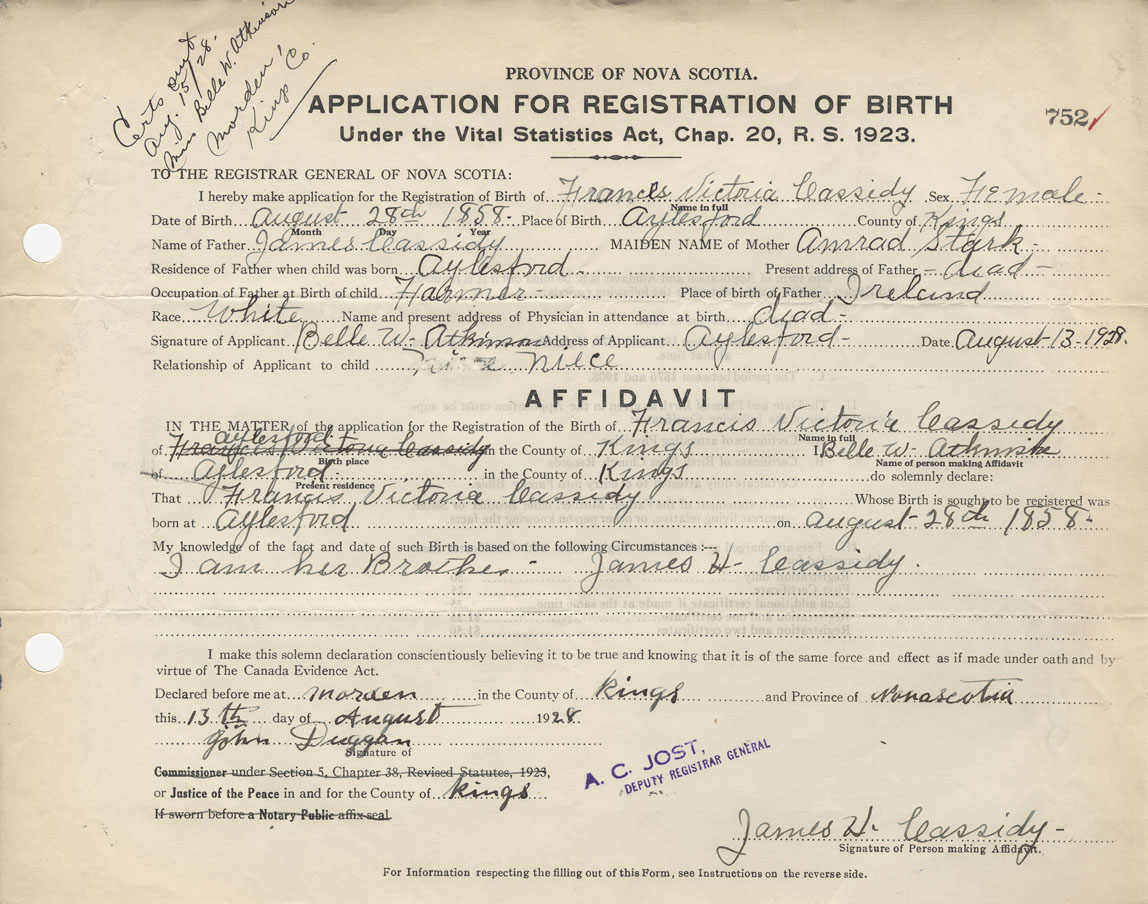 Certs sent
Aug. 15/28.
Miss Belle W. Atkinson
Morden,
Kings Co.
PROVINCE OF NOVA SCOTIA.
APPLICATION FOR REGISTRATION OF BIRTH
752
Under the Vital Statistics Act, Chap. 20, R. S. 1923.
TO THE REGISTRAR GENERAL OF NOVA SCOTIA:
I hereby make application for the Registration of Birth of Frances Victoria Cassidy Sex Female-
Name in full
Date of Birth August 28th 1858- Place of Birth Aylesford County of Kings
Month Day Year
Name of Father James Cassidy MAIDEN NAME of Mother Amrad Stark-
Residence of Father when child was born Aylesford- Present address of Father - dead -
Occupation of Father at Birth of child Farmer- Place of birth of Father Ireland
Race White Name and present address of Physician in attendance at birth dead-
Signature of Applicant Belle W- Atkinson Address of Applicant Aylesford- Date August-13-1928.
Relationship of Applicant to child Niece
AFFIDAVIT
IN THE MATTER of the application for the Registration of the Birth of Francis Victoria Cassidy
Name in full
of Francis Victoria Cassidy Aylesford in the County of Kings I Belle W- Atkinson
Birth place Name of person making Affidavit
of Aylesford- in the County of Kings do solemnly declare:
Present residence
That Francis Victoria Cassidy Whose Birth is sought to be registered was
born at Aylesford on August-28th 1858-
My knowledge of the fact and date of such Birth is based on the following Circumstances :---
I am her Brother - James H- Cassidy.
I make this solemn declaration conscientiously believing it to be true and knowing that it is of the same force and effect as if made under oath and by
virtue of The Canada Evidence Act.
Declared before me at Morden in the County of Kings and Province of Novascotia
this 13th day of August 1928
John Duggan
Signature of
Commissioner under Section 5, Chapter 38, Revised Statutes, 1923,
or Justice of the Peace in and for the County of Kings
If sworn before a Notary Public affix seal.
A. C. JOST,
DEPUTY REGISTRAR GENERAL
James H. Cassidy-
Signature of Person making Affidavit.
For Information respecting the filling out of this Form, see Instructions on the reverse side.